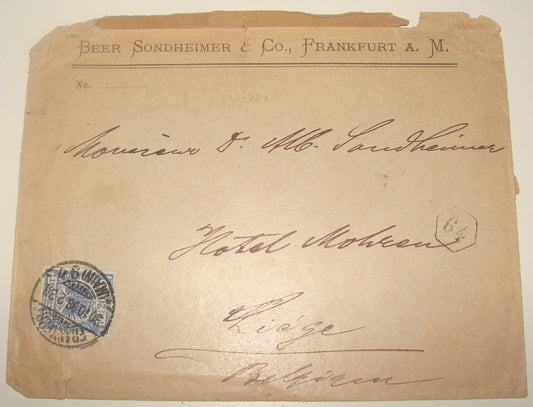 BEER SONDHEIMER & CO., FRANKFURT A. M.
No.
Monsieur Dr. Alb. Sondheimer
Hotel Mohren
64
Liége
Belgien